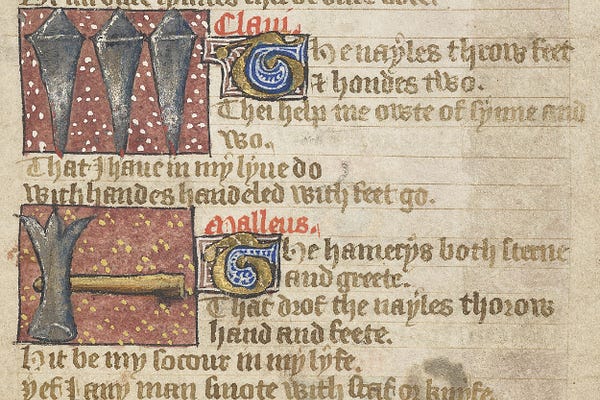 Claui.
The nayles throw feet
& handes two.
Thei help me owte of synne and
wo.
That I haue in my lyue do
With handes handeled with feet go.
Malleus.
The hamerys both sterne
and greete.
That drof the nayles thorow
hand and feete.
Hit be my socour in my lyfe.
yef I any man smote with staf or knyfe.